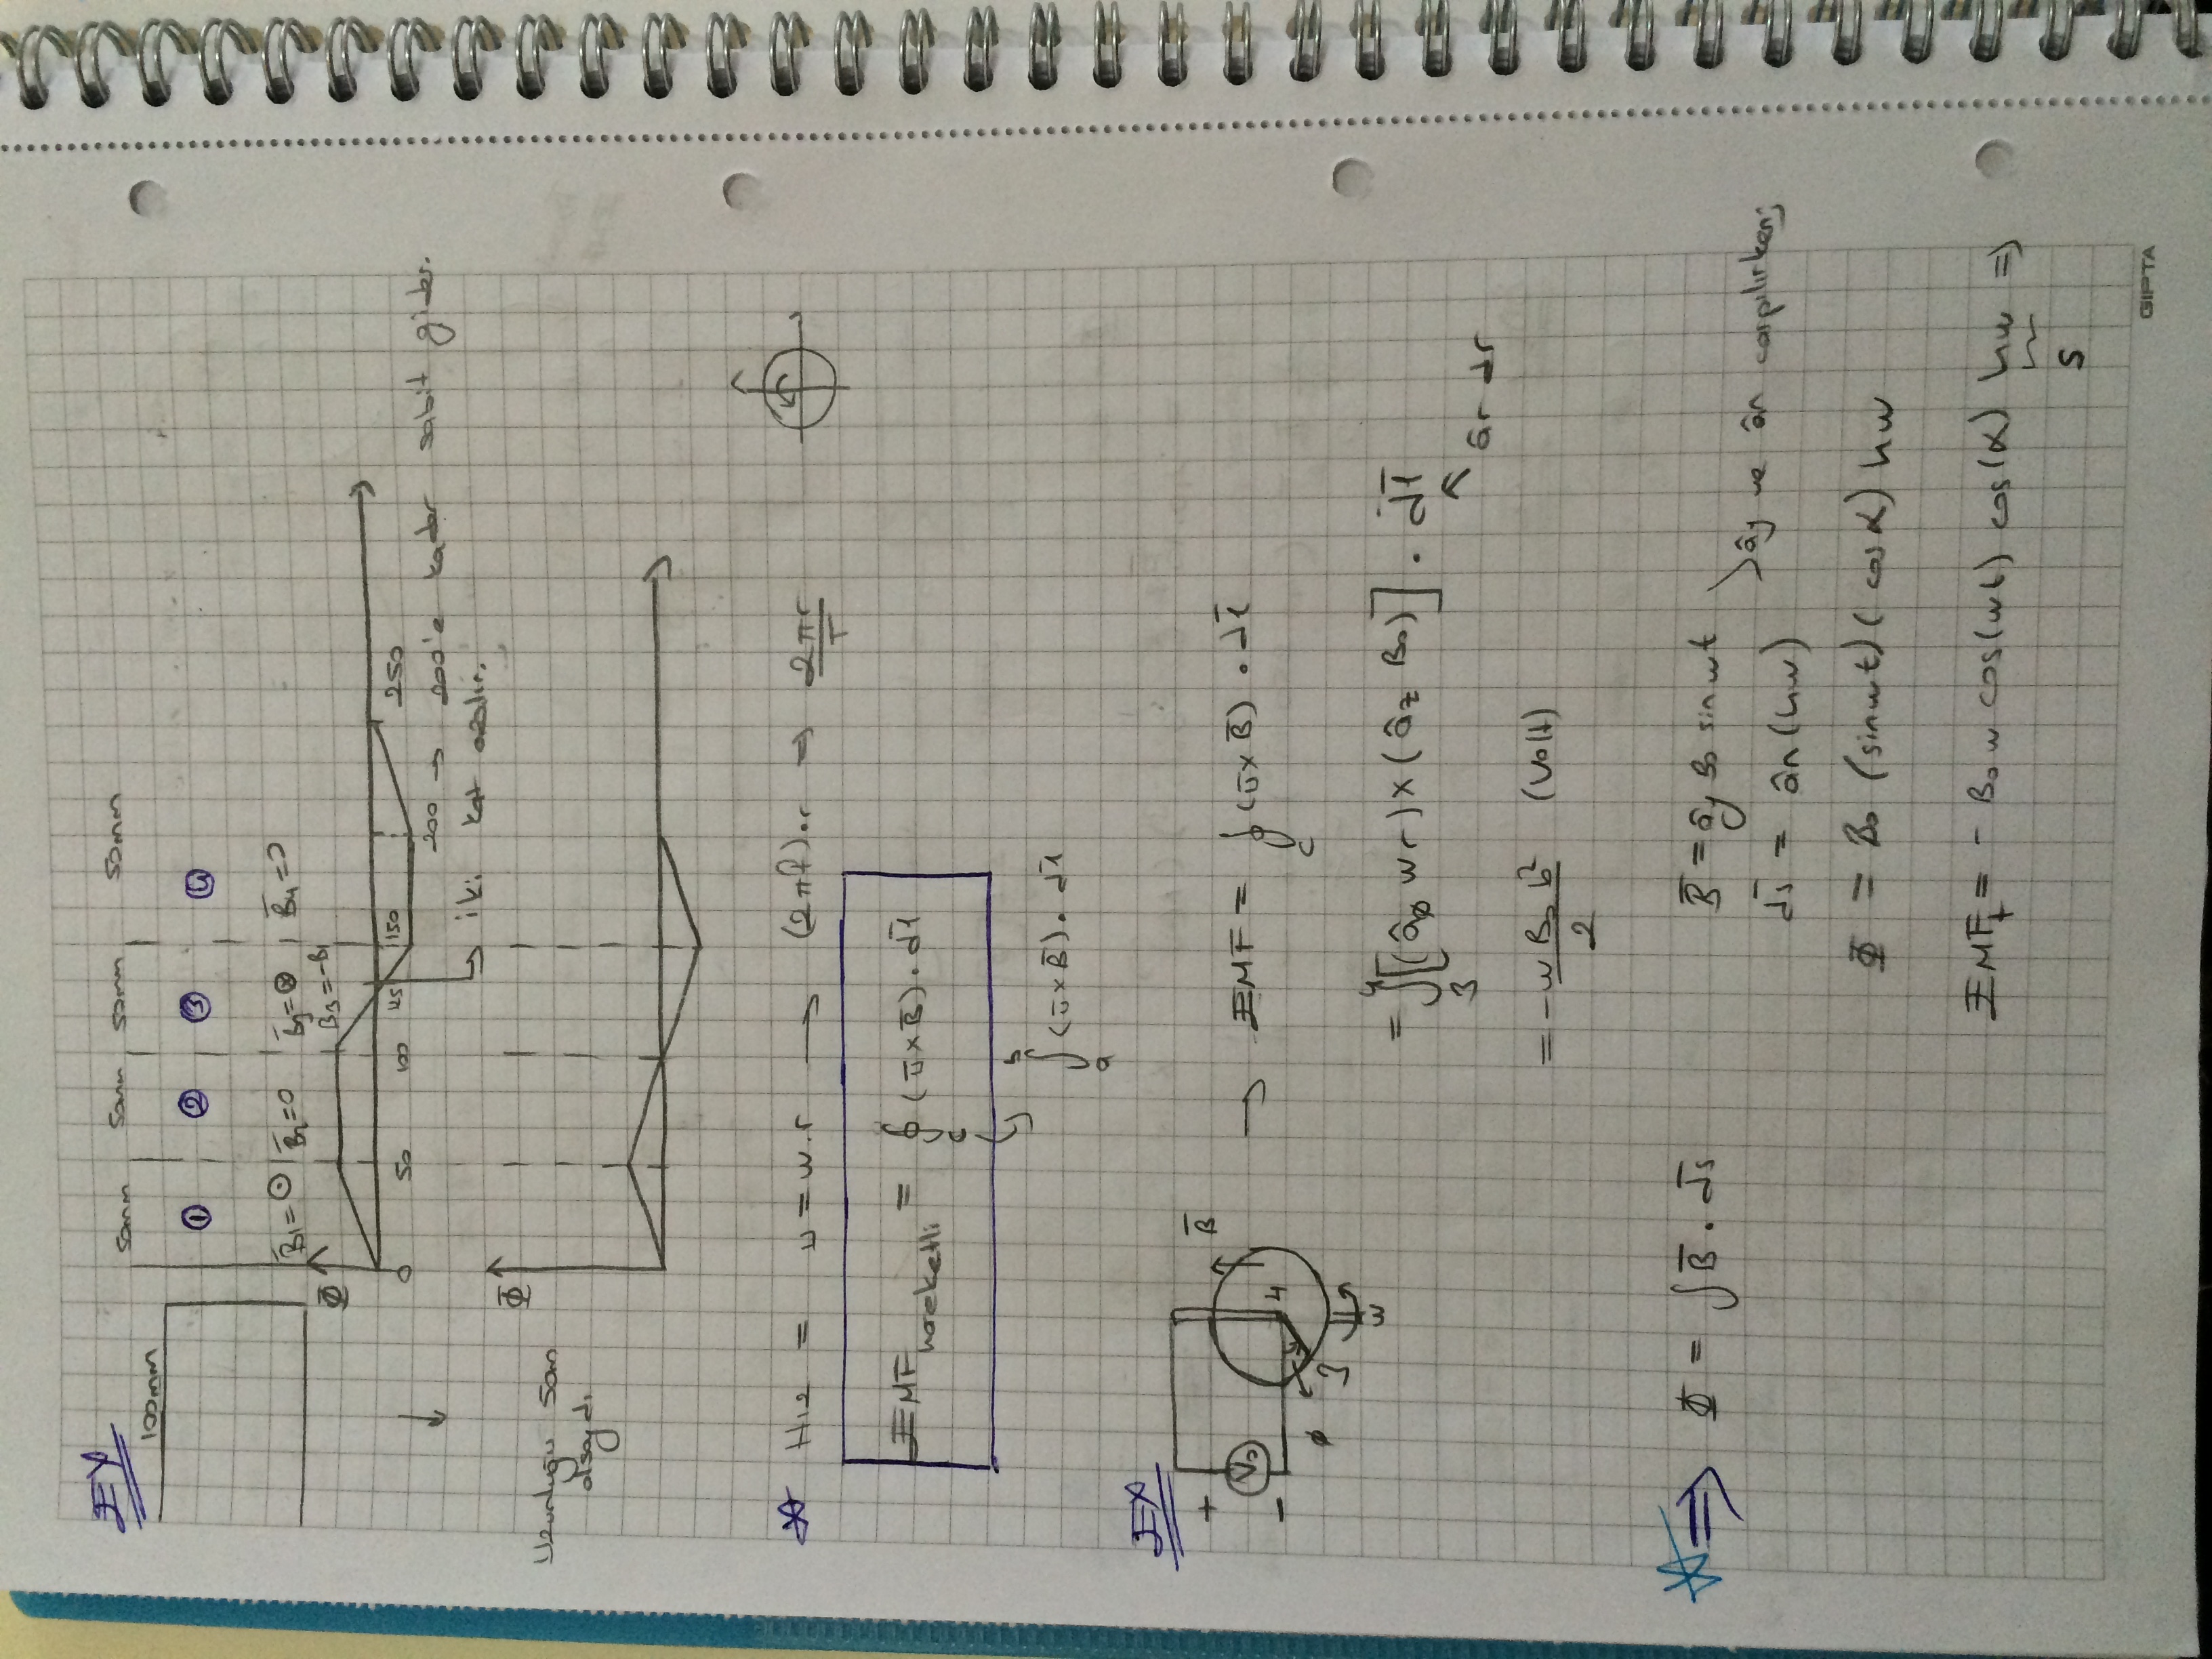 EX
50mm 50mm 50mm 50mm
100mm
① ② ③ ④
B̄1=⊙ B̄2=0 B̄3=⊗ B̄4=0
B3=-B1
Φ
0 50 100 125 150 250
200 → 200'e kadar sabit gider.
iki kat azalır.
Φ
Uzunluğu 50m
olsaydı
☆ Hız = u = w.r → (2πf).r ⇒ 2πr/T
EMF hareketli = ∮c (ū×B̄).dl̄
∫a^b (ū×B̄).dl̄
EX
+ V0 - B̄ 4 3 φ w
→ EMF = ∮c (ū×B̄).dl̄
= ∫3^4 [(âφ wr)×(âz B0)] . dl̄
âr dr
= -wB0b²/2 (Volt)
☆ ⇒ Φ = ∫B̄.ds̄ B̄ = ây B0 sinwt
ds̄ = ân(hw) ây ve ân çarpılırken;
Φ = B0 (sinwt)(cosα) hw
EMFt = - B0 w cos(wt) cos(α) hw ⇒
S
GIPTA